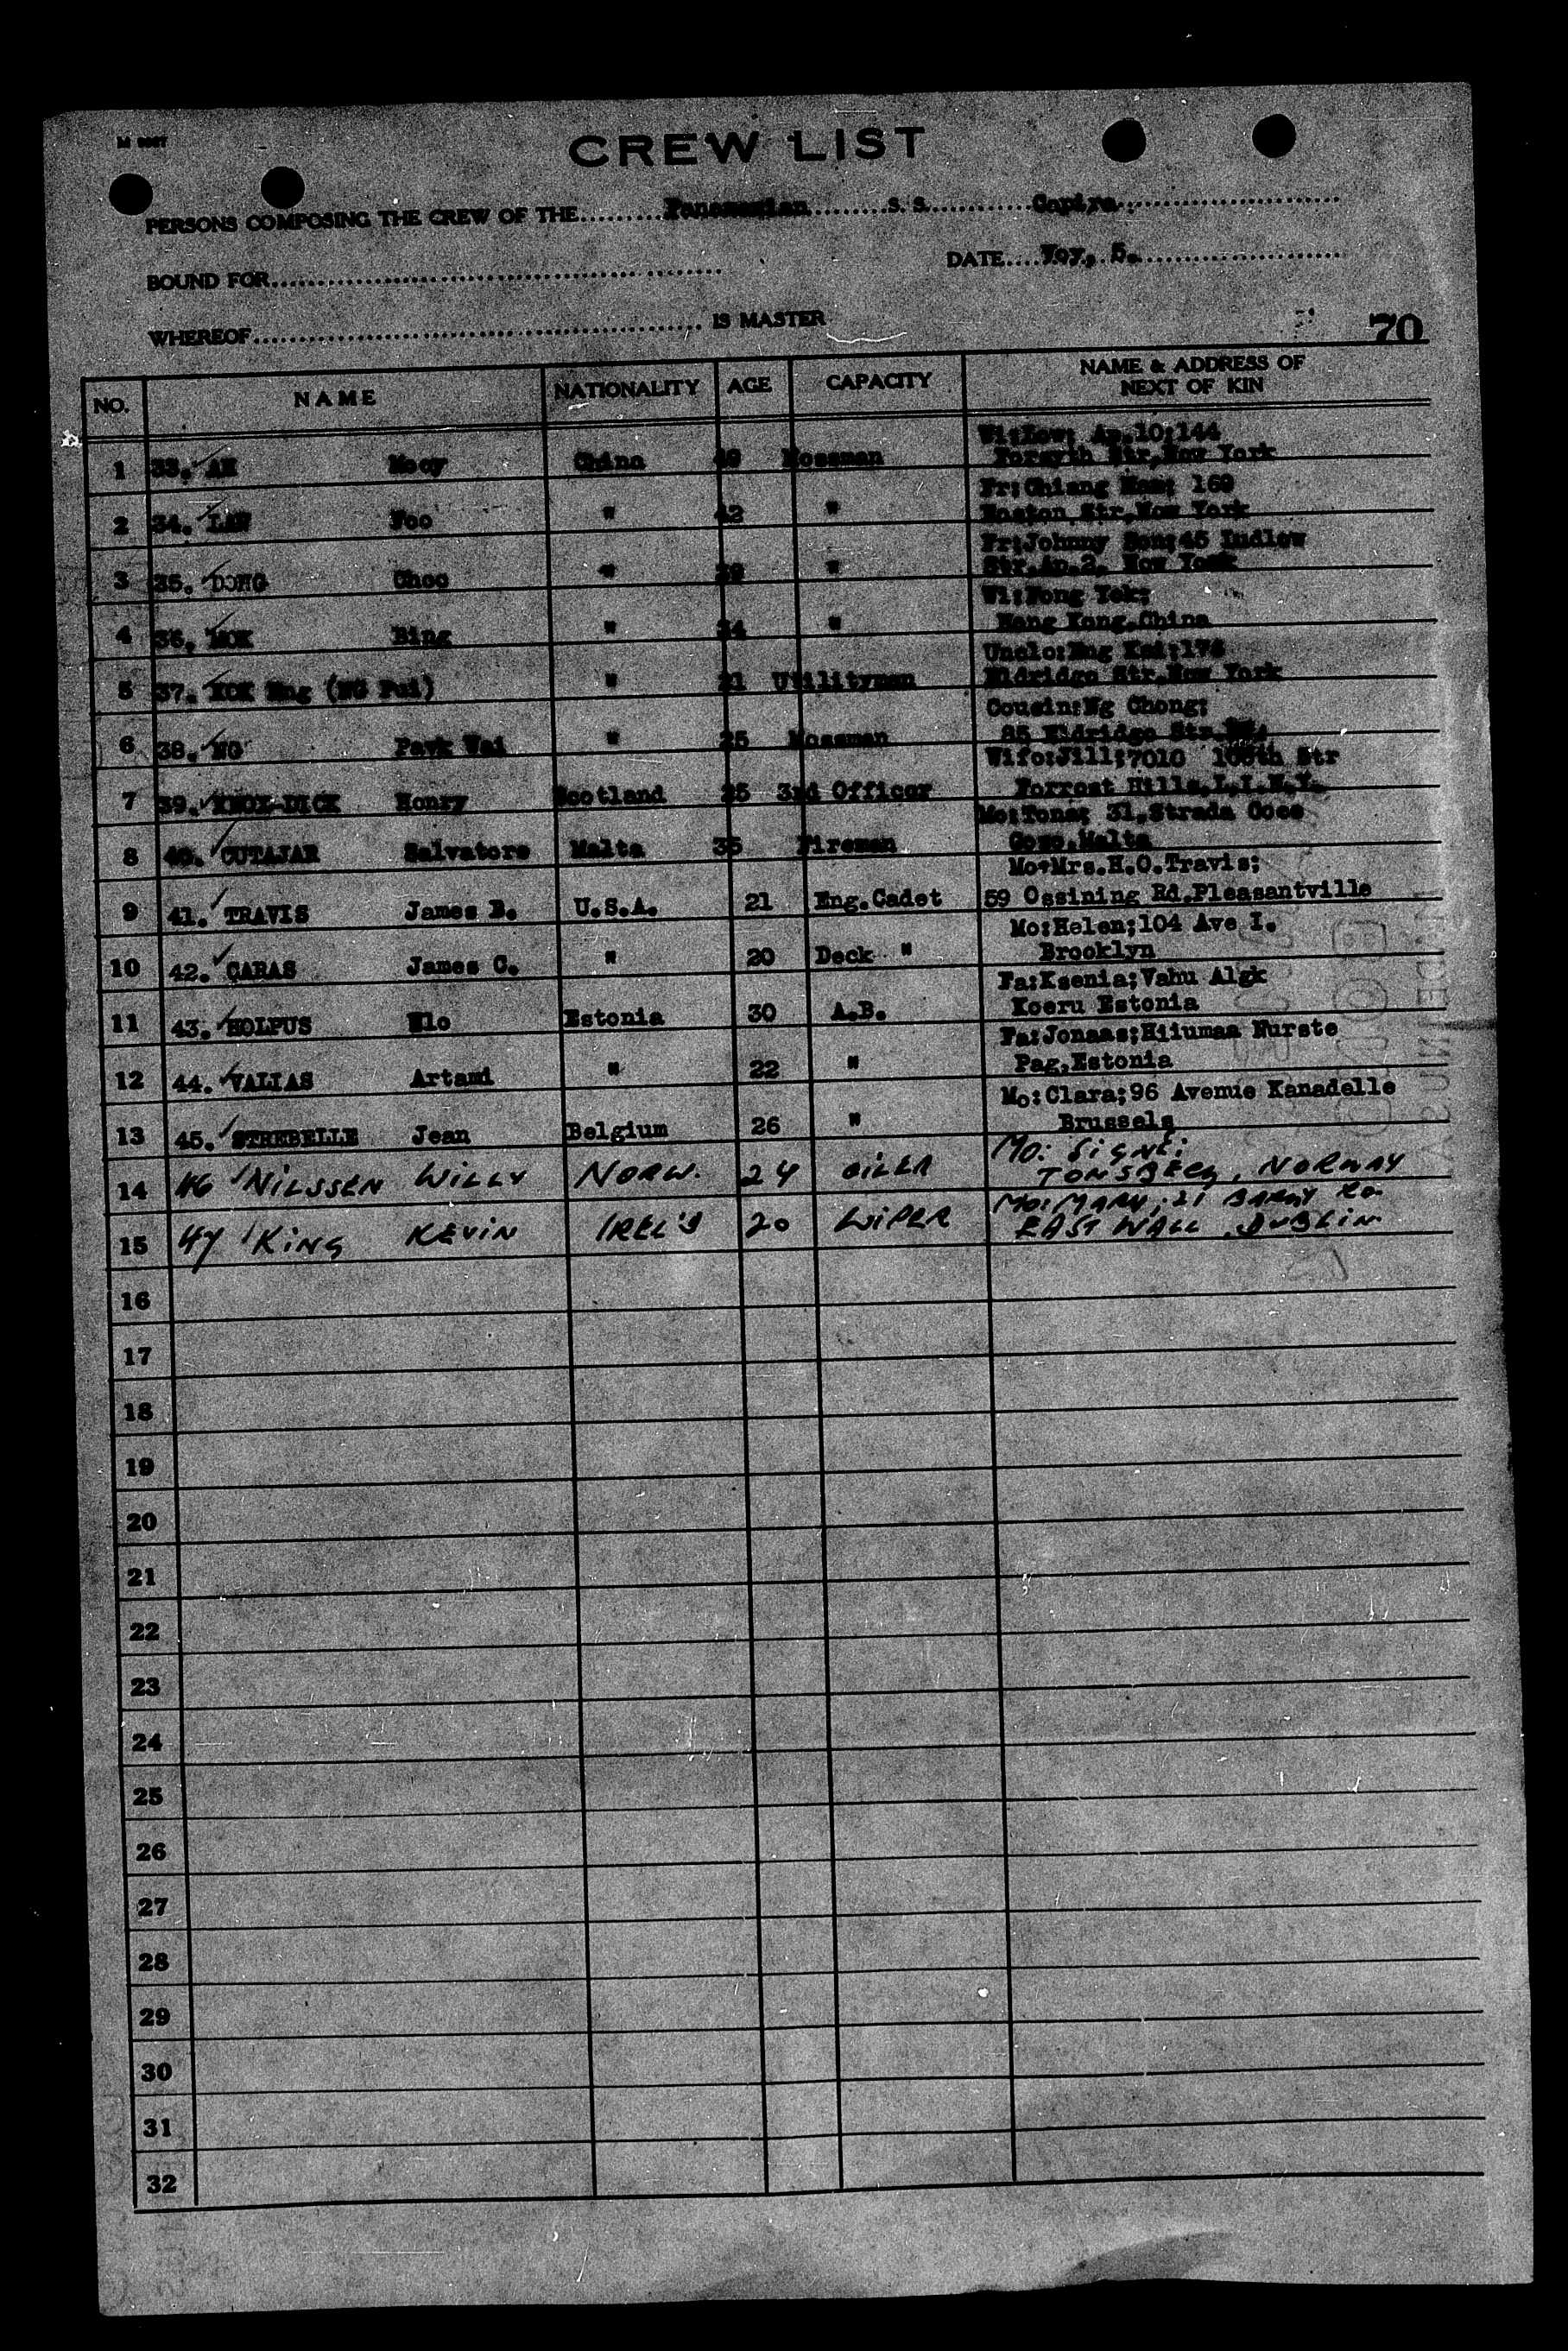 CREW LIST
PERSONS COMPOSING THE CREW OF THE.........Panamanian.........s.s............Capira.
BOUND FOR
DATE....Voy. 5.
WHEREOF.................................................... IS MASTER
70
NO. NAME NATIONALITY AGE CAPACITY NAME & ADDRESS OF
NEXT OF KIN
Wi:Low; Ap.10;144
1 33. AH China Messman Forsyth Str.New York
Fr:Chiang 169
2 34. Foo " 42 " Str.New York
Fr:Johnny 45 Ludlow
3 35. DONG Choo " " Str.Ap.2. New York
Wi:Fong Yek;
4 36. MOK Bing " 34 " Hong Kong.China
Uncle:Eng Kai;176
5 37. KOK Eng (NG Pui) " 21 Utilityman Eldridge Str.New York
Cousin:Ng Chong;
6 38. NG Wai " 25 Messman 85 Eldridge Str.
Wife:Jill;7010 108th Str
7 39. KNOX-DICK Henry Scotland 25 3rd Officer Forrest Hills.L.I.N.Y.
Mo:Tona; 31,Strada Coco
8 40. CUTAJAR Salvatore Malta 35 Fireman Gozo.Malta
Mo:Mrs.H.O.Travis;
9 41. TRAVIS James B. U.S.A. 21 Eng.Cadet 59 Ossining Rd.Pleasantville
Mo:Helen;104 Ave I.
10 42. CARAS James C. " 20 Deck " Brooklyn
Fa:Ksenia;Vahu Algk
11 43. HOLPUS Elo Estonia 30 A.B. Koeru Estonia
Fa:Jonaas;Hiiumaa Nurste
12 44. VALIAS Artami " 22 " Pag.Estonia
Mo:Clara;96 Avenue Kanadelle
13 45. STREBELLE Jean Belgium 26 " Brussels
MO: SIGNE;
14 46 NILSSEN WILLY NORW. 24 OILER TONSBERG, NORWAY
MO: MARY; 21 BARRY RD.
15 47 KING KEVIN IREL'D 20 WIPER EAST WALL, DUBLIN
16
17
18
19
20
21
22
23
24
25
26
27
28
29
30
31
32